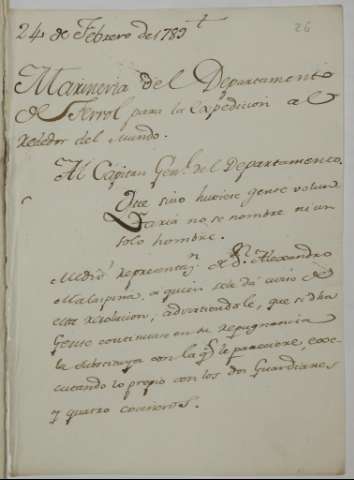 26
24 de Febrero de 1789
Marineria del Departamento
de Ferrol para la Expedicion al
rededor del Mundo.
Al Capitan Genl. del Departamento.
Que sino huviese gente volun
taria no se nombre ni un
solo hombre.
Medió representn. de Dn. Alexandro
Malaspina, a quien se le dá aviso de
esta resolucion, advirtiendole, que si dha
Gente continuase en su repugnancia
la substituya con la qe. le pareciere, exe-
cutando lo propio con los dos Guardianes
y quatro